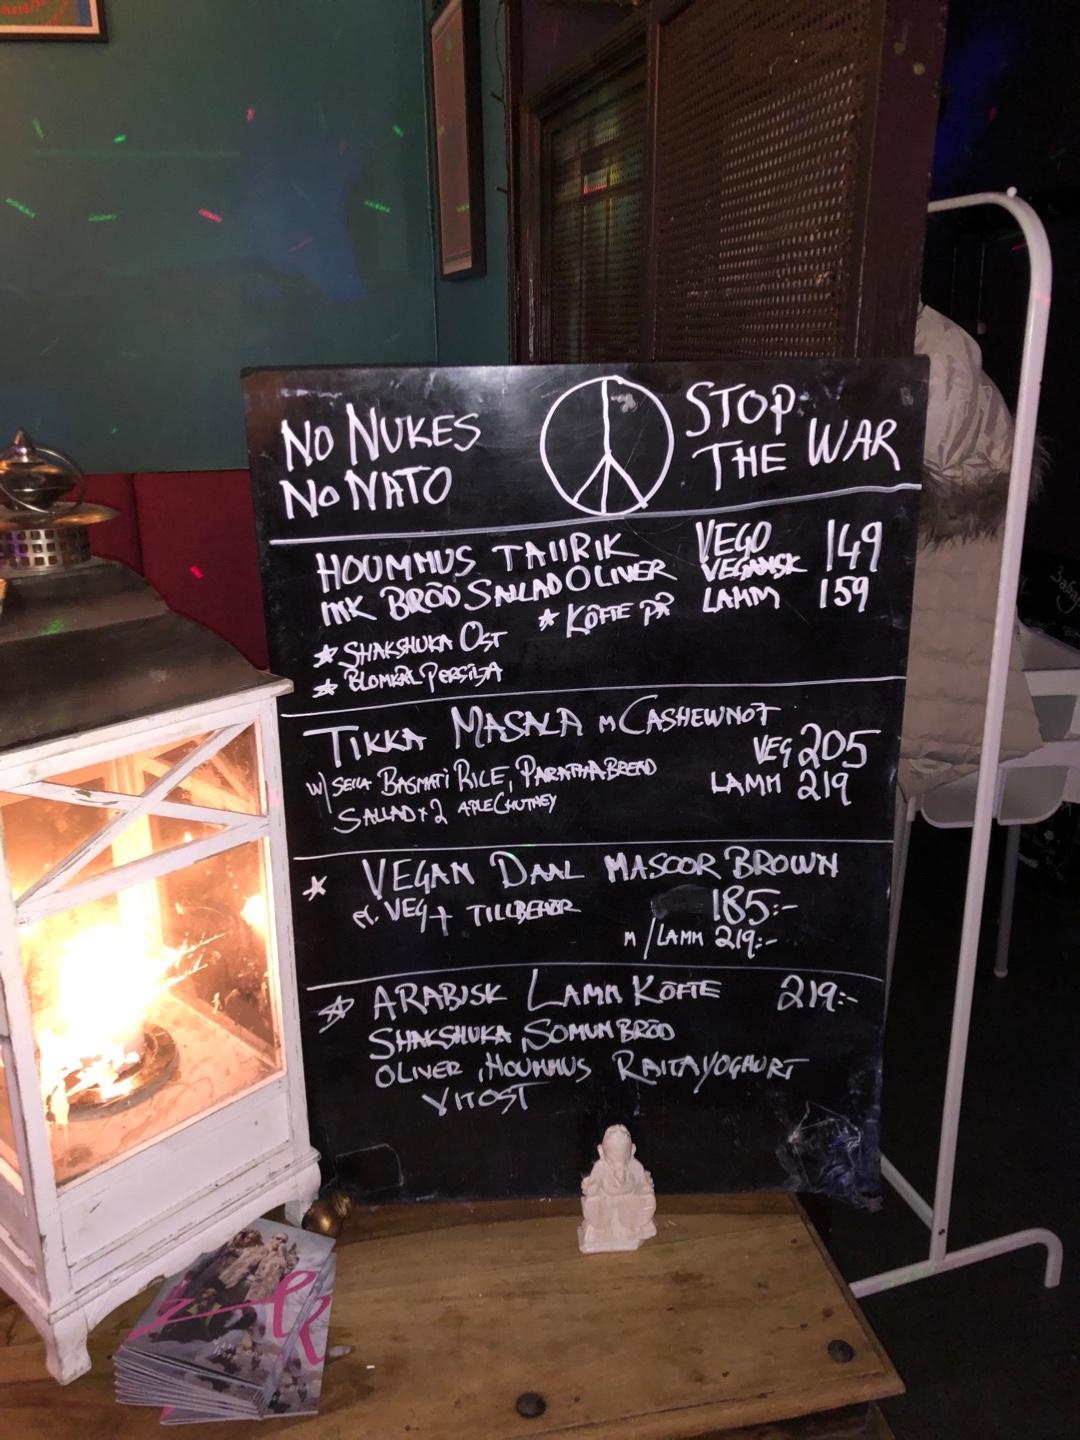 No NUKES
No NATO
STOP
THE WAR
HOUMMUS TALLRIK
INK BRÖD SALLAD OLIVER
VEGO 149
VEGANSK
LAMM 159
SHAKSHUKA OST
KÖFTE PÅ
BLOMKÅL PERSILJA
TIKKA MASALA M CASHEWNOT
VEG 205
LAMM 219
W/ SELLA BASMATI RICE, PARATHA BREAD
SALLAD x 2 APLE CHUTNEY
VEGAN DAAL MASOOR BROWN
VEG + TILLBEHÖR 185:-
M/LAMM 219:-
ARABISK LAMM KÖFTE 219:-
SHAKSHUKA, SOMUN BRÖD
OLIVER, HOUMMUS RAITAYOGHURT
VITOST